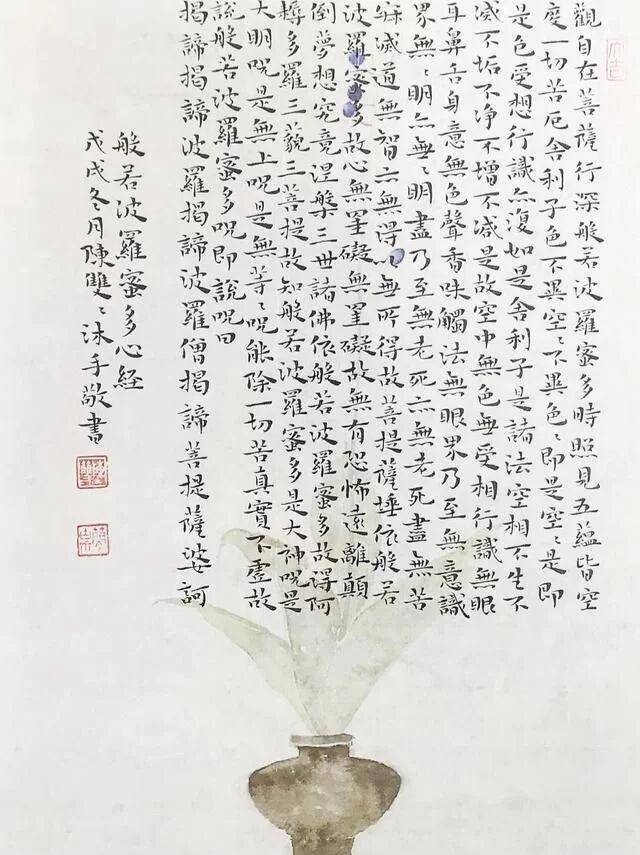 觀自在菩薩行深般若波羅蜜多時照見五蘊皆空
度一切苦厄舍利子色不異空〻不異色〻即是空〻是即
是色受想行識亦復如是舍利子是諸法空相不生不
滅不垢不淨不增不減是故空中無色無受相行識無眼
耳鼻舌身意無色聲香味觸法無眼界乃至無意識
界無〻明亦無〻明盡乃至無老死亦無老死盡無苦
寂滅道無智亦無得以無所得故菩提薩埵依般若
波羅蜜多故心無罣礙無罣礙故無有恐怖遠離顛
倒夢想究竟涅槃三世諸佛依般若波羅蜜多故得阿
耨多羅三藐三菩提故知般若波羅蜜多是大神咒是
大明咒是無上咒是無等〻咒能除一切苦真實不虛故
說般若波羅蜜多咒即說咒曰
揭諦揭諦波羅揭諦波羅僧揭諦菩提薩婆訶
般若波羅蜜多心經
戊戌冬月陳雙〻沐手敬書